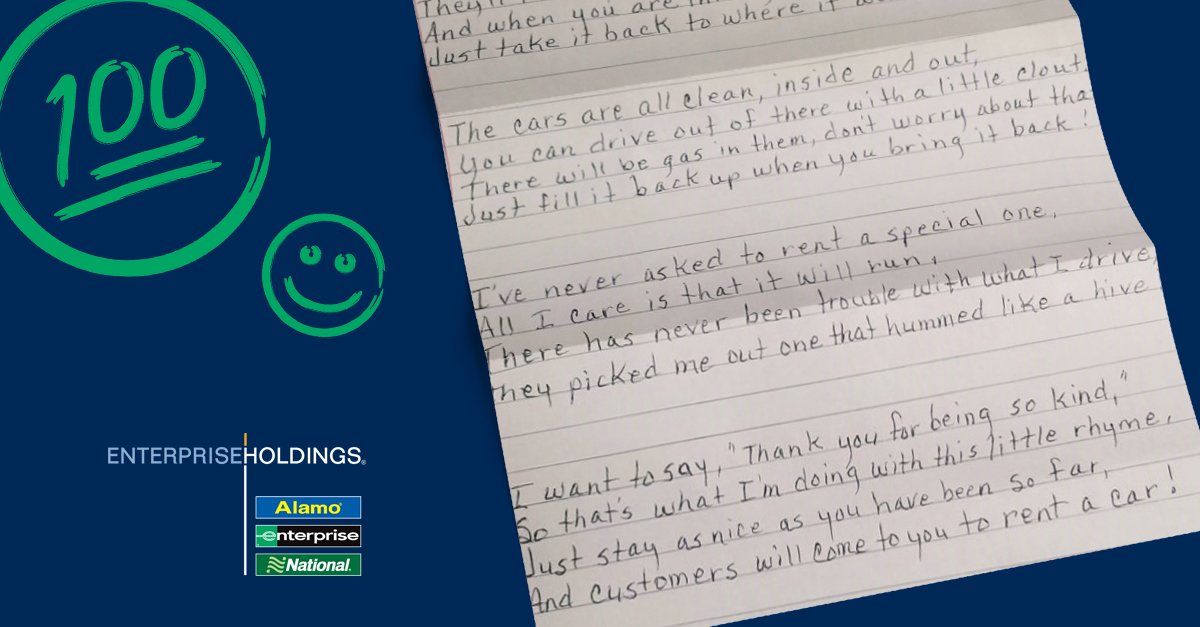 100
ENTERPRISEHOLDINGS®
Alamo®
enterprise
National.
They'll
And when you are
Just take it back to where it
The cars are all clean, inside and out,
You can drive out of there with a little clout.
There will be gas in them, don't worry about tha
Just fill it back up when you bring it back!
I've never asked to rent a special one,
All I care is that it will run,
There has never been trouble with what I drive,
They picked me out one that hummed like a hive
I want to say, "Thank you for being so kind,"
So that's what I'm doing with this little rhyme.
Just stay as nice as you have been so far,
And customers will come to you to rent a car!